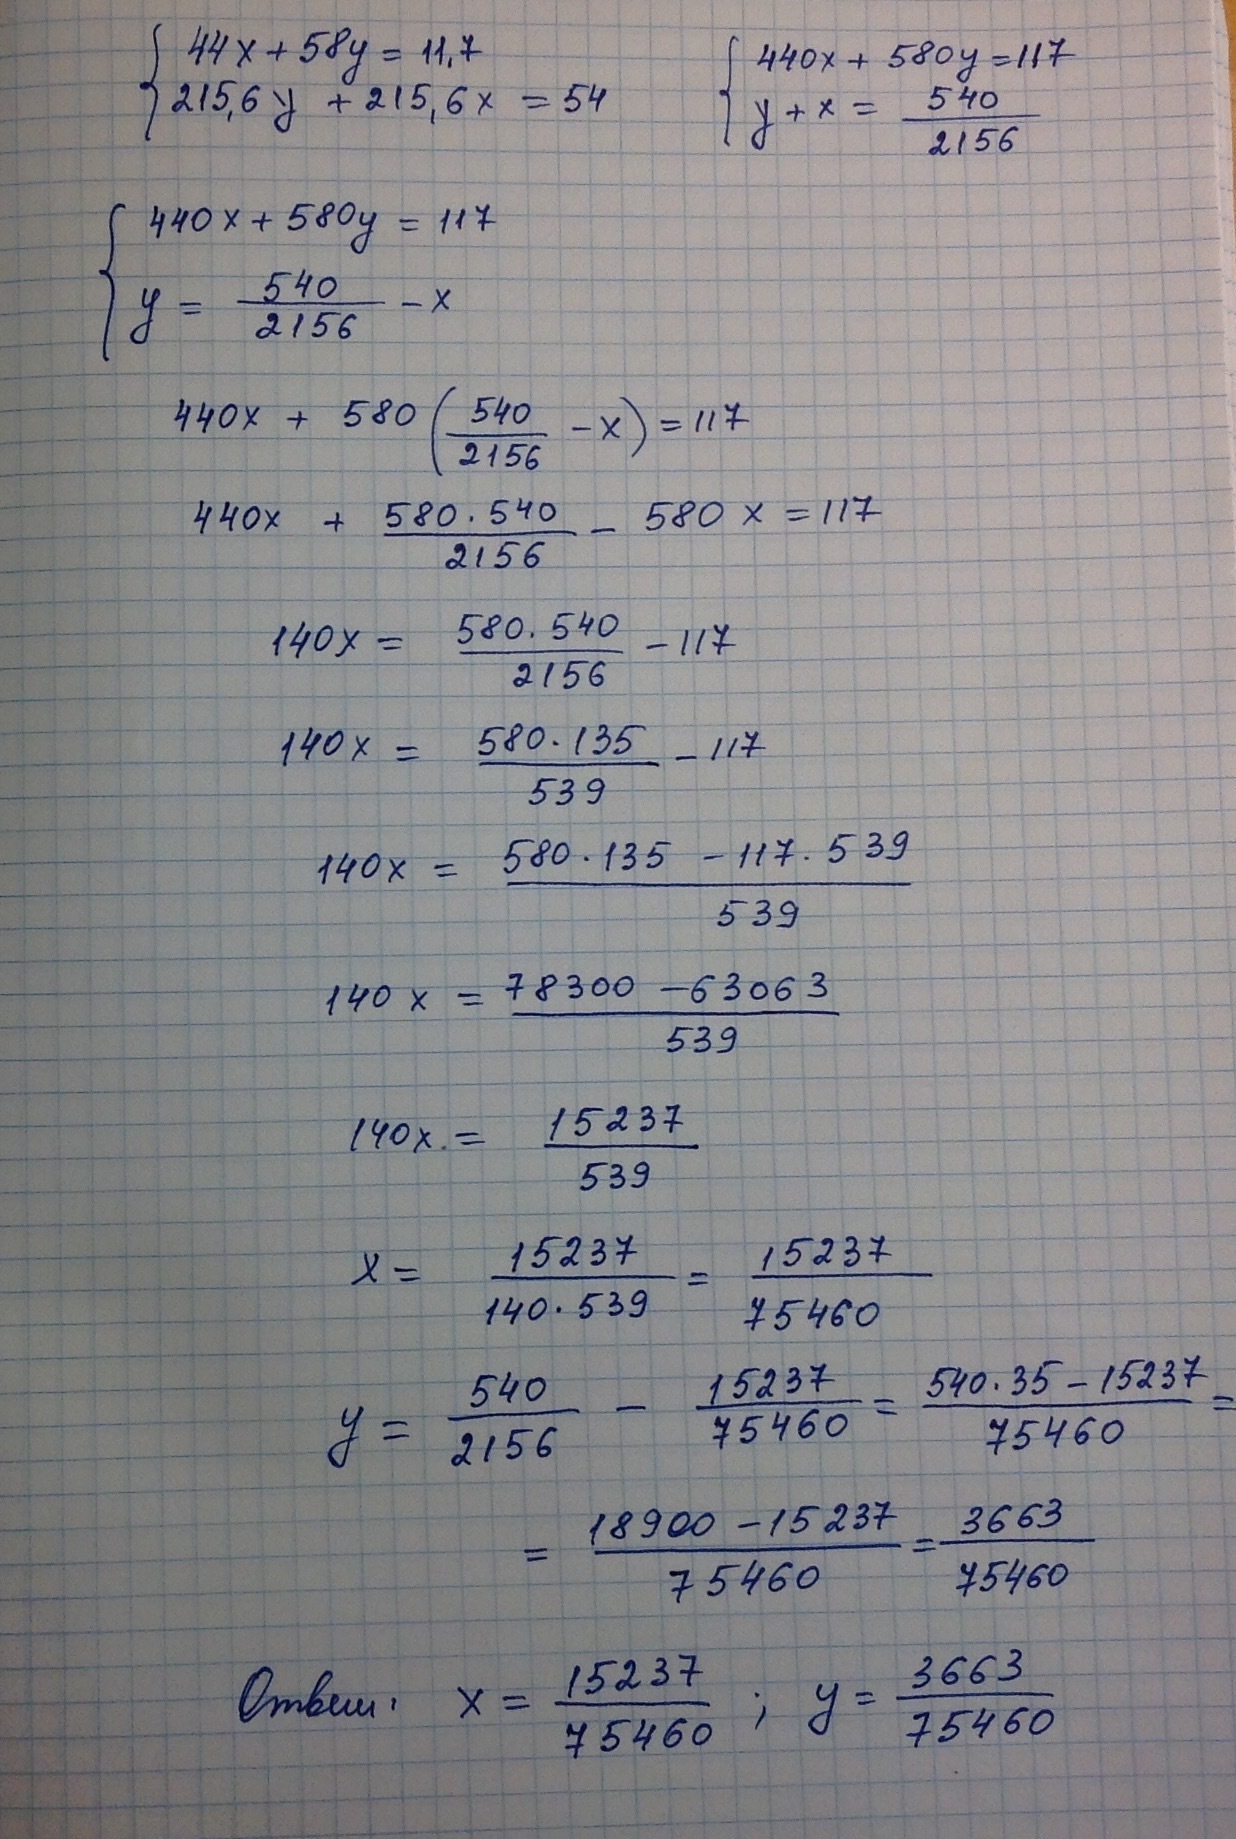 { 44x + 58y = 11,7
{ 215,6y + 215,6x = 54
{ 440x + 580y = 117
{ y + x = 540/2156
{ 440x + 580y = 117
{ y = 540/2156 - x
440x + 580 (540/2156 - x) = 117
440x + 580·540/2156 - 580x = 117
140x = 580·540/2156 - 117
140x = 580·135/539 - 117
140x = (580·135 - 117·539)/539
140x = (78300 - 63063)/539
140x = 15237/539
x = 15237/(140·539) = 15237/75460
y = 540/2156 - 15237/75460 = (540·35 - 15237)/75460 =
= (18900 - 15237)/75460 = 3663/75460
Ответ: x = 15237/75460 ; y = 3663/75460